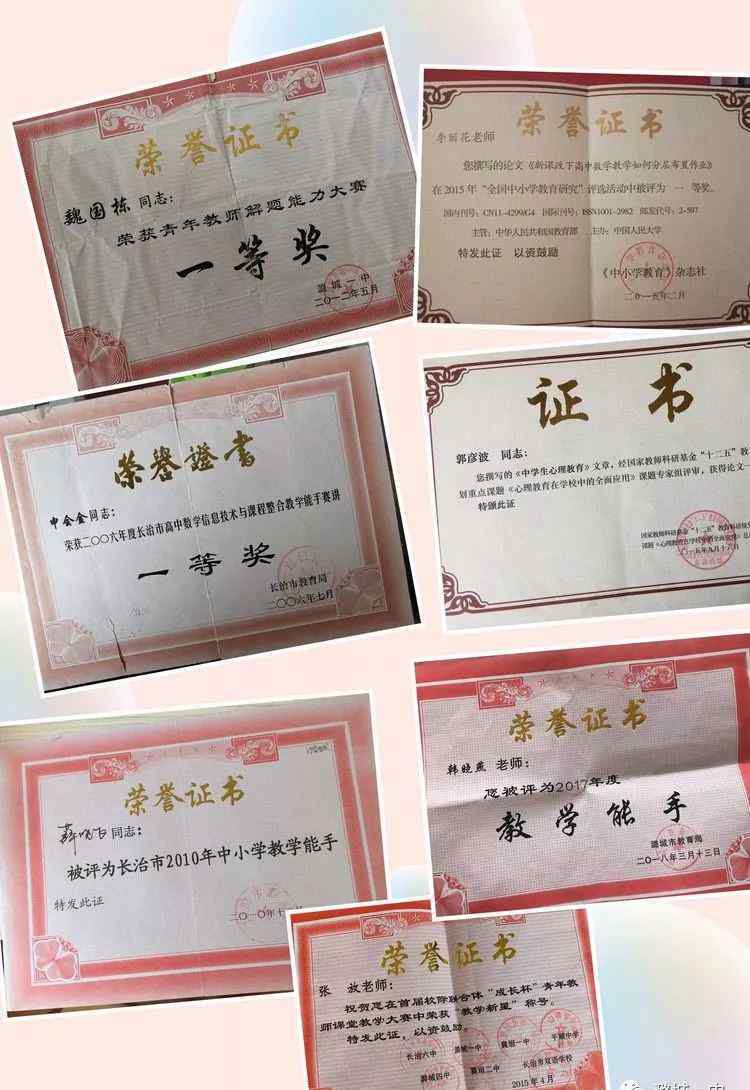 荣誉证书
魏国栋 同志：
荣获青年教师解题能力大赛
一等奖
潞城一中
二〇一二年五月
荣誉证书
李丽花老师
您撰写的论文《新课改下高中数学教学如何分层布置作业》
在2015年“全国中小学教育研究”评选活动中被评为 一 等奖。
国内刊号：CN11-4299/G4 国际刊号：ISSN1001-2982 邮发代号：2-597
主管：中华人民共和国教育部 主办：中国人民大学
特发此证 以资鼓励
《中小学教育》杂志社
二〇一五年二月
荣誉證書
申会金同志：
荣获二〇〇六年度长治市高中数学信息技术与课程整合教学能手赛讲
一等奖
长治市教育局
二〇〇六年七月
证书
郭彦波 同志：
您撰写的《中学生心理教育》文章，经国家教师科研基金“十二五”教
划重点课题《心理教育在学校中的全面应用》课题专家组评审，获得论文一
特颁此证
国家教师科研基金“十二五”教育科研规
二〇一五年九月十六日
荣誉证书
同志：
被评为长治市2010年中小学教学能手
特发此证
二〇一〇年十
荣誉证书
韩晓燕 老师：
您被评为2017年度
教学能手
潞城市教育局
二〇一八年三月十三日
荣誉证书
张 敏老师：
祝贺您在首届校际联合体“成长杯”青年教
师课堂教学大赛中荣获“教学新星”称号。
特发此证，以资鼓励。
长治六中 潞城一中 襄垣一中 平顺中学
潞城四中 襄垣二中 长治市双语学校
2015年4月